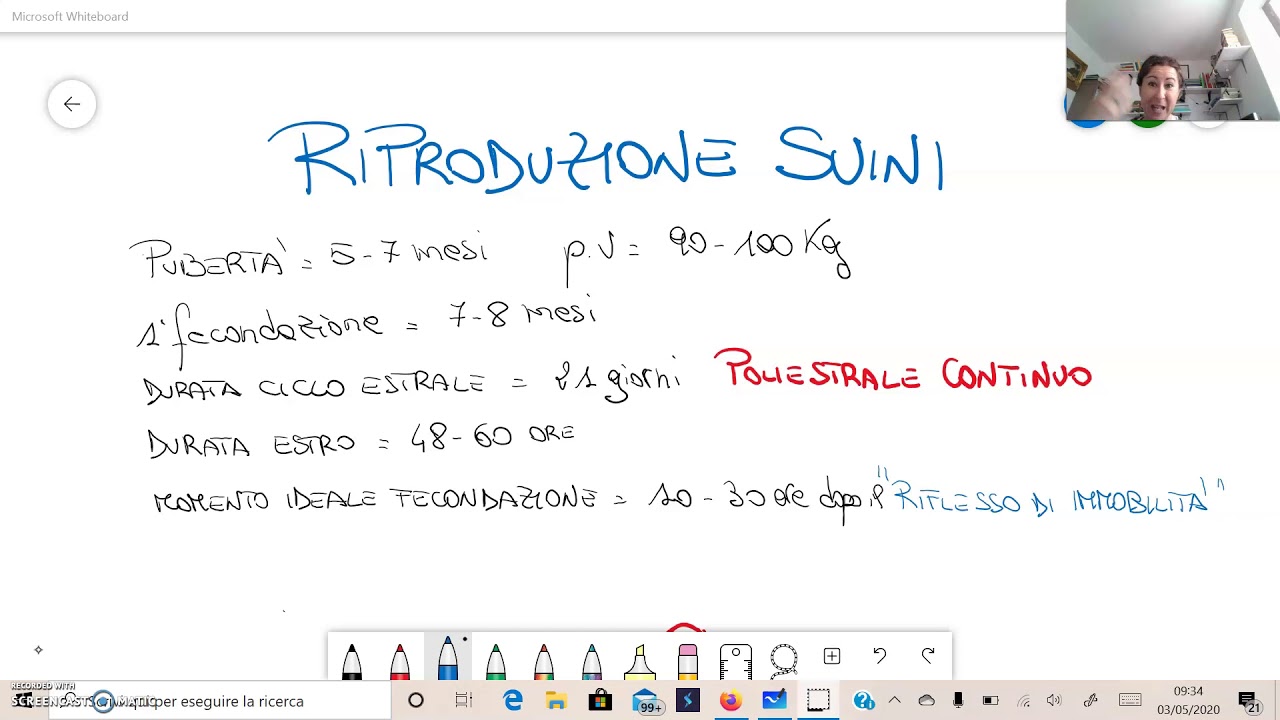 Microsoft Whiteboard
RIPRODUZIONE SUINI
PUBERTA' = 5-7 mesi p.V = 90-100 Kg
1° fecondazione = 7-8 mesi
DURATA CICLO ESTRALE = 21 giorni POLIESTRALE CONTINUO
DURATA ESTRO = 48-60 ORE
MOMENTO IDEALE FECONDAZIONE = 20-30 ore dopo il "RIFLESSO DI IMMOBILITA'"
RECORDED WITH
SCREENCAST-O-MATIC
Scrivi qui per eseguire la ricerca
99+
09:34
03/05/2020
21